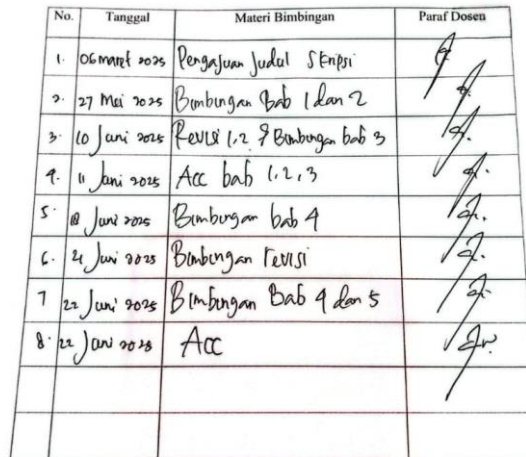 No. Tanggal Materi Bimbingan Paraf Dosen
1. 06 maret 2025 Pengajuan Judul Skripsi
2. 27 Mei 2025 Bimbingan Bab 1 dan 2
3. 10 Juni 2025 Revisi 1,2 & Bimbingan bab 3
4. 11 Juni 2025 Acc bab 1,2,3
5. 18 Juni 2025 Bimbingan bab 4
6. 21 Juni 2025 Bimbingan revisi
7 22 Juni 2025 Bimbingan Bab 4 dan 5
8. 22 Juni 2025 Acc